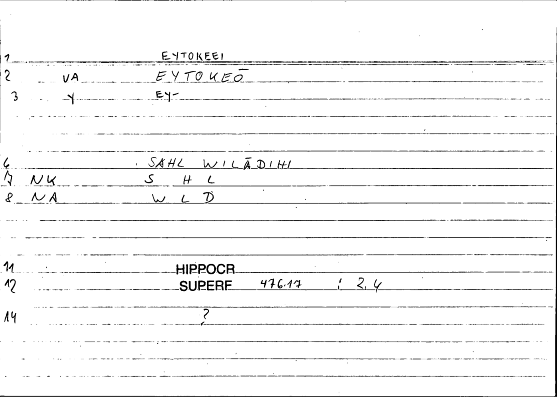 1 EYTOKEEI
2 VA EYTOKEŌ
3 Y EY-
6 SAHL WILĀDIHI
7 NK S H L
8 NA W L D
11 HIPPOCR
12 SUPERF 476.17 : 2,4
14 ?